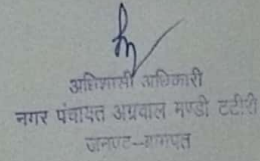 अधिशासी अधिकारी
नगर पंचायत अग्रवाल मण्डी टटीरी
जनपद--बागपत